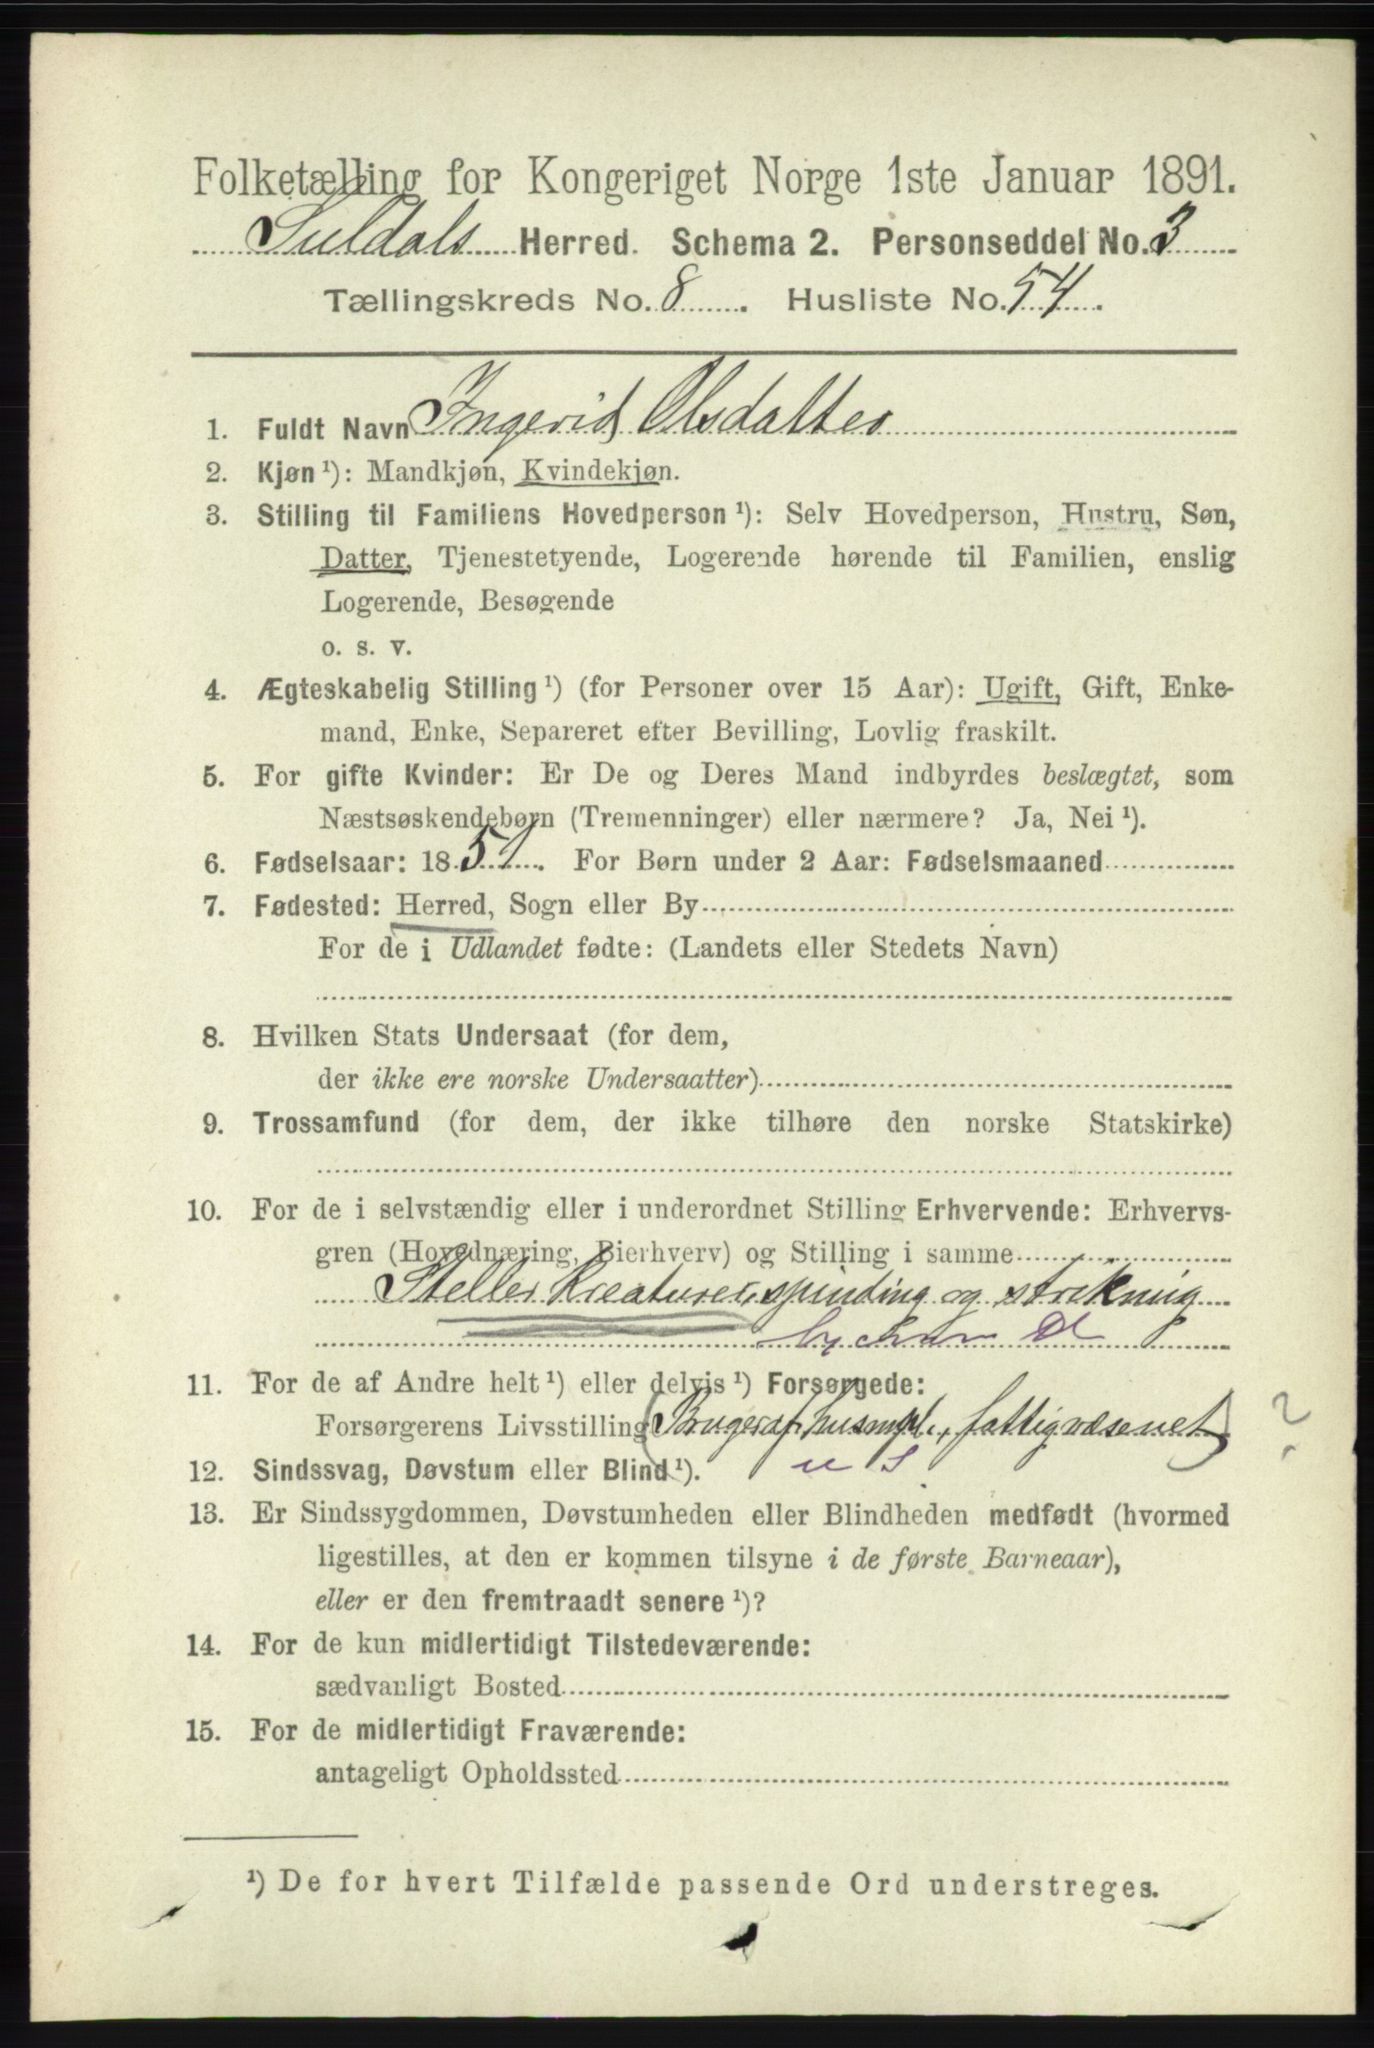 Folketælling for Kongeriget Norge 1ste Januar 1891.
Suldals Herred. Schema 2. Personseddel No. 3
Tællingskreds No. 8. Husliste No. 54.
1. Fuldt Navn Ingerid Olsdatter
2. Kjøn ¹): Mandkjøn, Kvindekjøn.
3. Stilling til Familiens Hovedperson ¹): Selv Hovedperson, Hustru, Søn,
Datter, Tjenestetyende, Logerende hørende til Familien, enslig
Logerende, Besøgende
o. s. v.
4. Ægteskabelig Stilling ¹) (for Personer over 15 Aar): Ugift, Gift, Enke-
mand, Enke, Separeret efter Bevilling, Lovlig fraskilt.
5. For gifte Kvinder: Er De og Deres Mand indbyrdes beslægtet, som
Næstsøskendebørn (Tremenninger) eller nærmere? Ja, Nei ¹).
6. Fødselsaar: 1851. For Børn under 2 Aar: Fødselsmaaned
7. Fødested: Herred, Sogn eller By
For de i Udlandet fødte: (Landets eller Stedets Navn)
8. Hvilken Stats Undersaat (for dem,
der ikke ere norske Undersaatter)
9. Trossamfund (for dem, der ikke tilhøre den norske Statskirke)
10. For de i selvstændig eller i underordnet Stilling Erhvervende: Erhvervs-
gren (Hovednæring, Bierhverv) og Stilling i samme
Steller Kreaturer, spinding og strikning
11. For de af Andre helt ¹) eller delvis ¹) Forsørgede:
Forsørgerens Livsstilling (Bruger af husmpl., fattigvæsenet) ?
12. Sindssvag, Døvstum eller Blind ¹).
13. Er Sindssygdommen, Døvstumheden eller Blindheden medfødt (hvormed
ligestilles, at den er kommen tilsyne i de første Barneaar),
eller er den fremtraadt senere ¹)?
14. For de kun midlertidigt Tilstedeværende:
sædvanligt Bosted
15. For de midlertidigt Fraværende:
antageligt Opholdssted
¹) De for hvert Tilfælde passende Ord understreges.